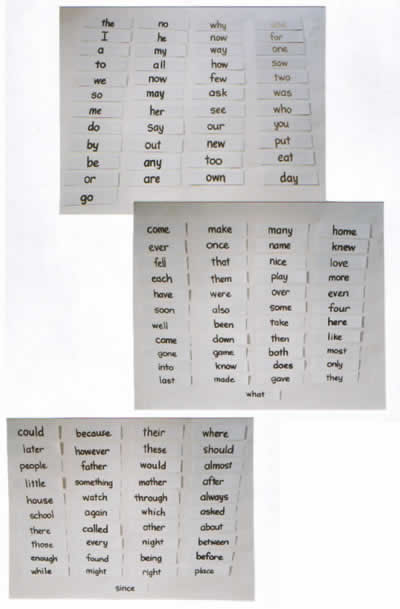 the no why
I he now for
a my way one
to all how saw
we now few two
so may ask was
me her see who
do say our you
by out new put
be any too eat
or are own day
go
come make many home
ever once name knew
fell that nice love
each them play more
have were over even
soon also some four
well been take here
came down then like
gone game both most
into know does only
last made gave they
what
could because their where
later however these should
people father would almost
little something mother after
house watch through always
school again which asked
there called other about
those every night between
enough found being before
while might right place
since